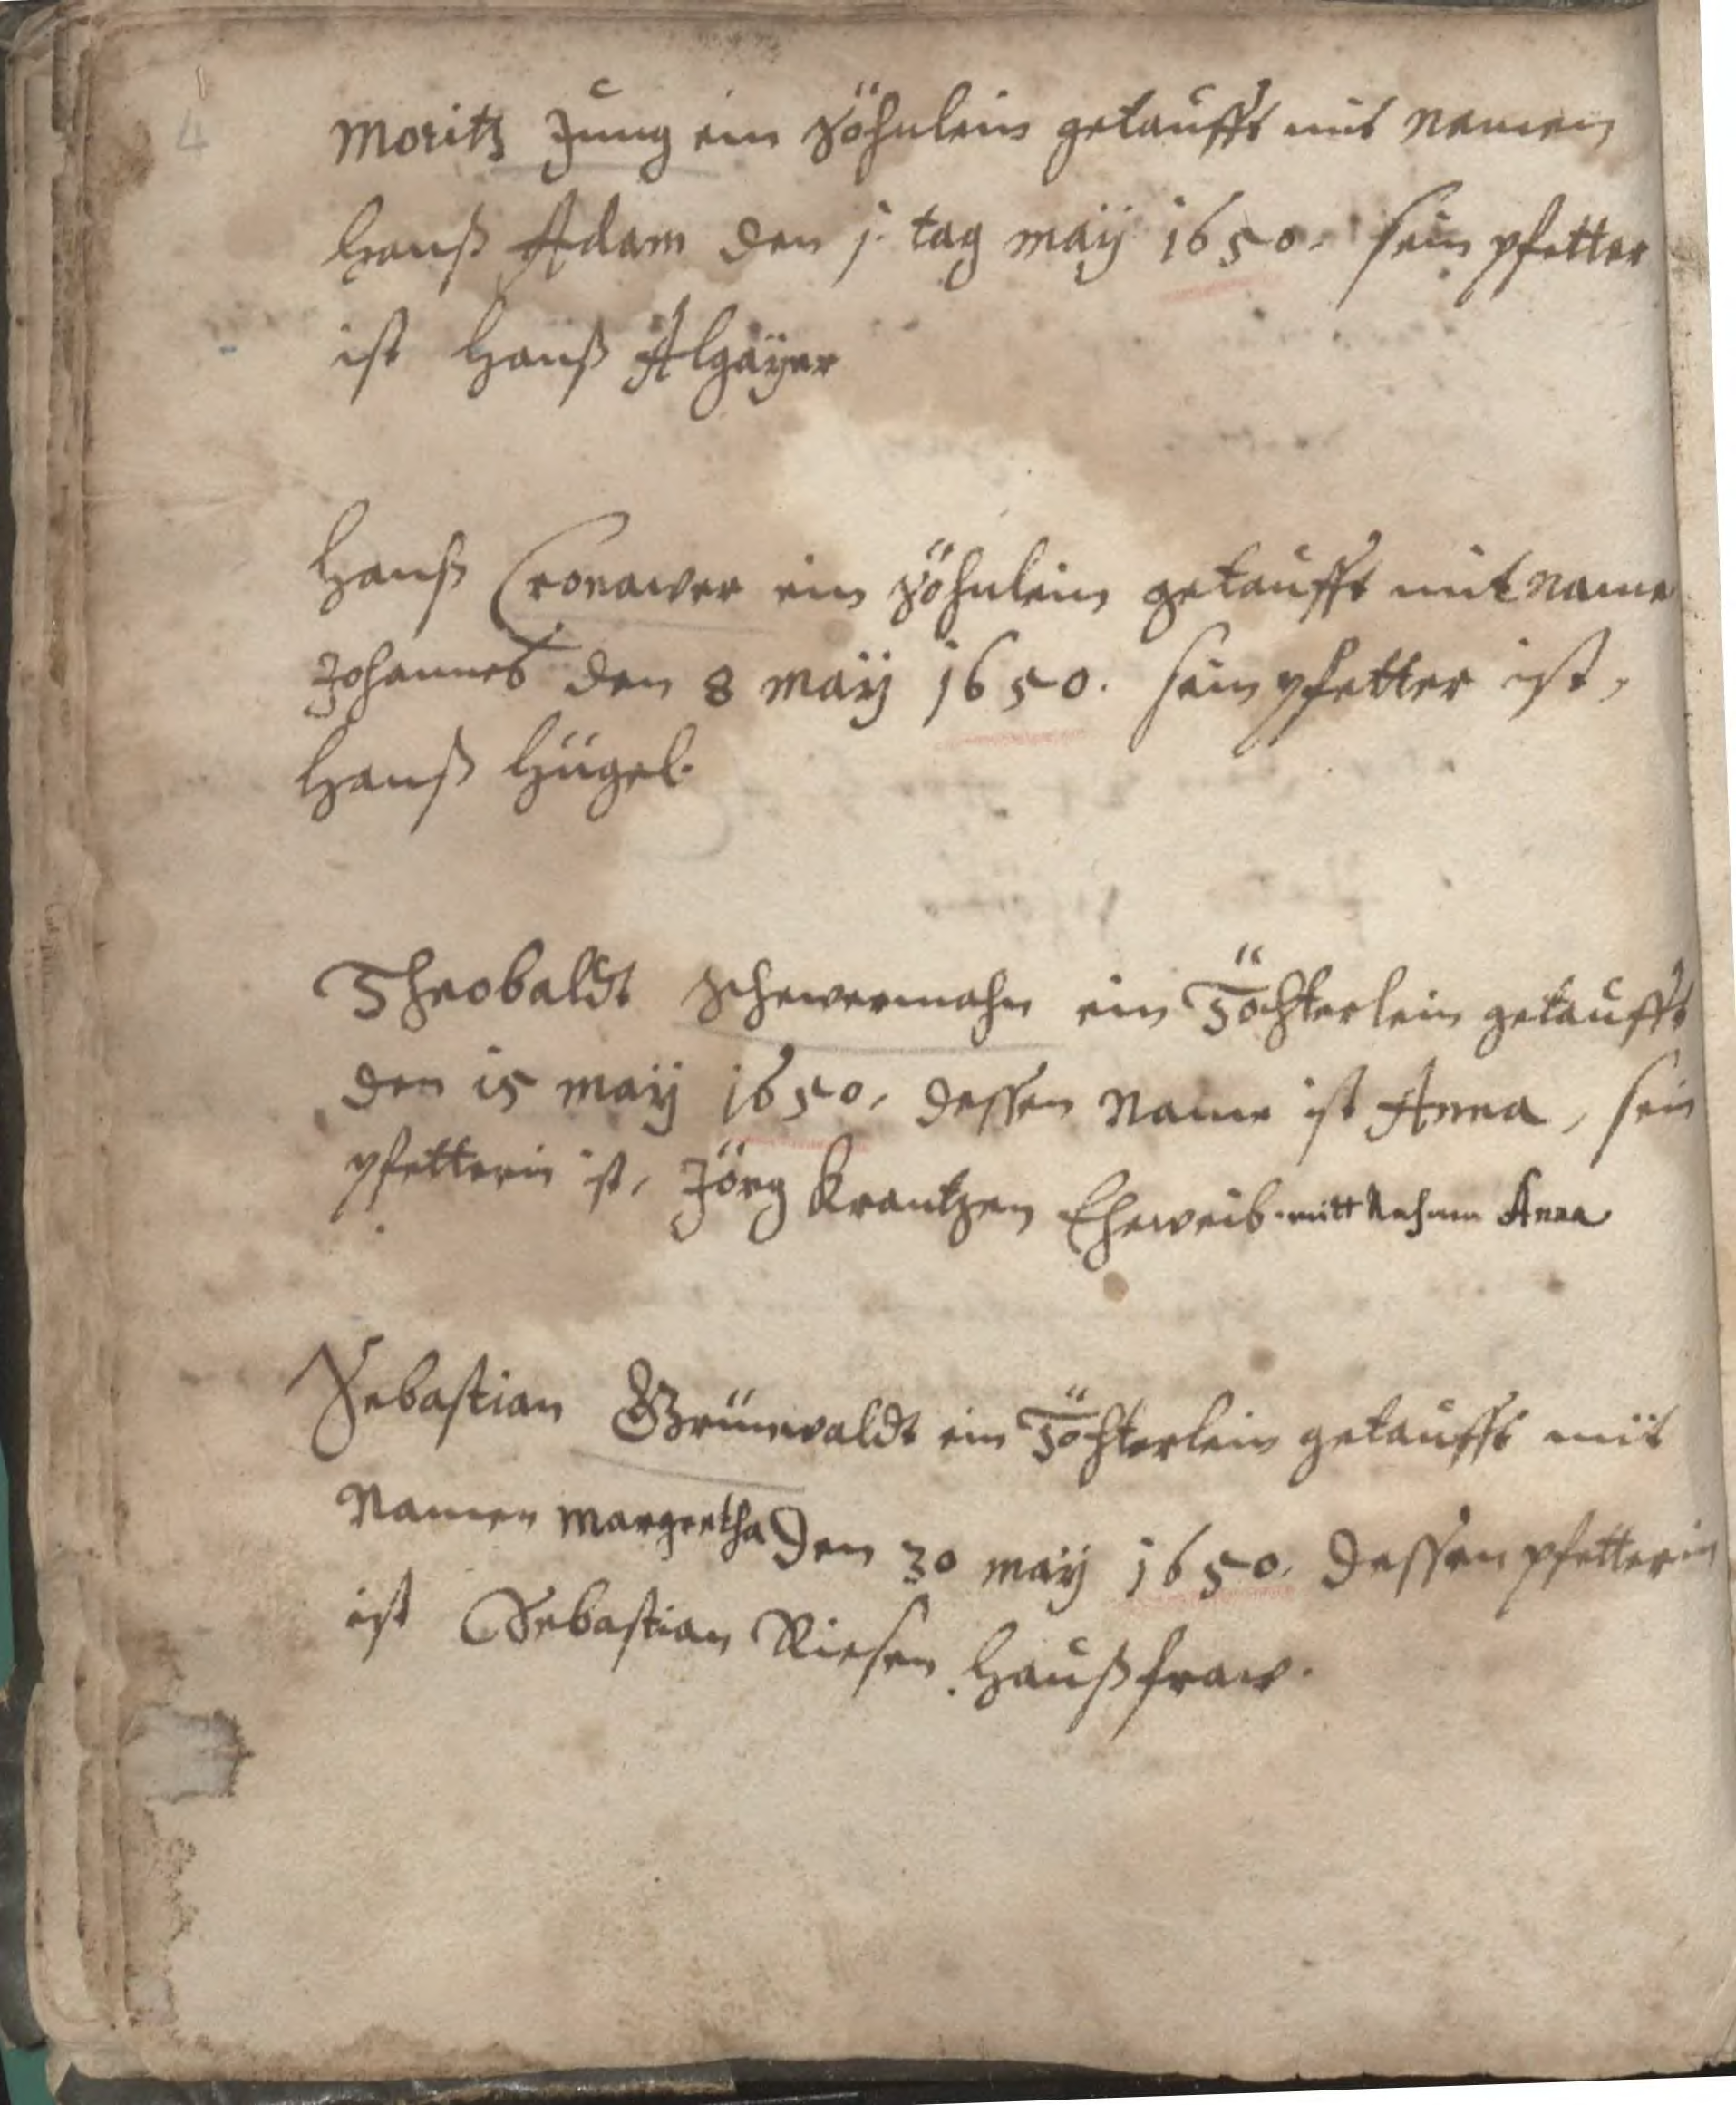 4
Moritz Jung ein Söhnlein getaufft mit namen
Hanß Adam den j. tag maÿ 1650. sein pfetter
ist Hanß Algäyer
Hanß Cronawer ein Söhnlein getaufft mit name
Johannes den 8 maÿ 1650. sein pfetter ist,
Hanß Hügel.
Theobaldt Schewermahn ein Töchterlein getaufft
den 15 maÿ 1650, dessen Name ist Anna, sein
pfetterin ist, Jörg Krantzen Eheweib. mitt Nahmen Anna
Sebastian Grünwaldt ein Töchterlein getaufft mit
Namen Margretha den 30 maÿ 1650. dessen pfetterin
ist Sebastian Riesen Haußfraw.